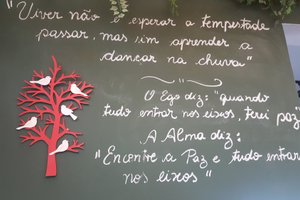 "Viver não é esperar a tempestade
passar, mas sim aprender a
dançar na chuva"
O Ego diz: "quando
tudo entrar nos eixos, terei paz
A Alma diz:
"Encontre a Paz e tudo entrar
nos eixos"